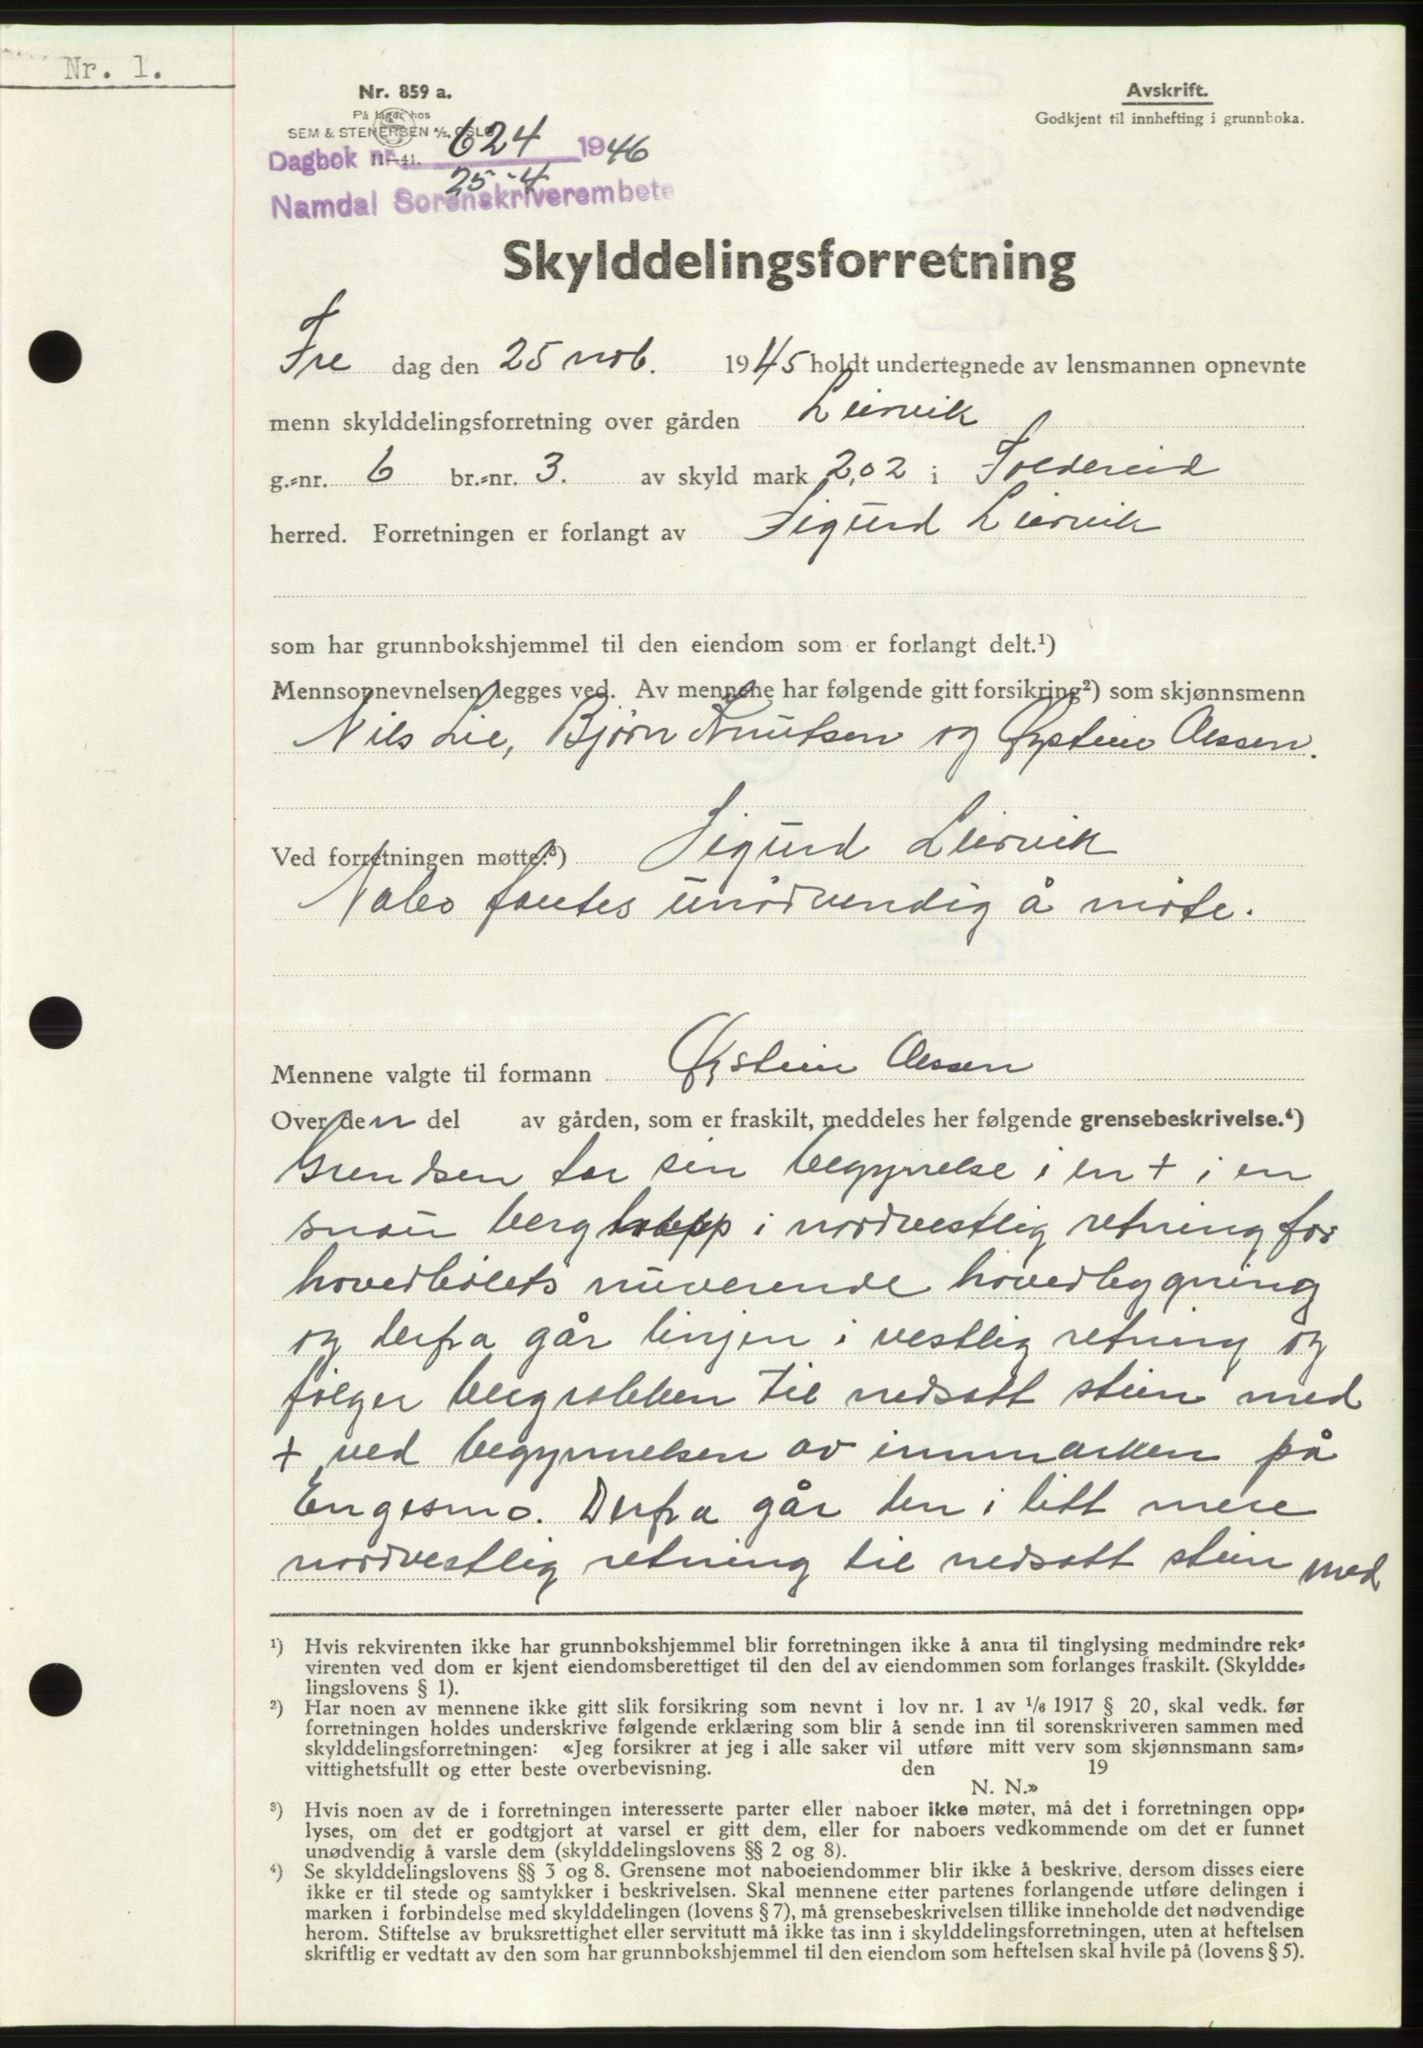 Nr. 1.
Nr. 859 a.
På lager hos
SEM & STENERSEN A/S, OSLO
11—41.
Avskrift.
Godkjent til innhefting i grunnboka.
Dagbok nr. 624 1946
25-4
Namdal Sorenskriverembete
Skylddelingsforretning
Fre dag den 25 nob. 1945 holdt undertegnede av lensmannen opnevnte
menn skylddelingsforretning over gården Leirvik
g.=nr. 6 br.=nr. 3. av skyld mark 2,02 i Foldereid
herred. Forretningen er forlangt av Sigurd Leirvik
som har grunnbokshjemmel til den eiendom som er forlangt delt.¹)
Mennsopnevnelsen legges ved. Av mennene har følgende gitt forsikring²) som skjønnsmenn
Nils Lie, Bjørn Knutsen og Øystein Aessen.
Ved forretningen møtte:³) Sigurd Leirvik
Nabo fantes unødvendig å møte.
Mennene valgte til formann Øystein Aessen
Over den del av gården, som er fraskilt, meddeles her følgende grensebeskrivelse.⁴)
Grendsen tar sin begynnelse i en + i en
snau berg i nordvestlig retning for
hovedbølets nuverende hovedbygning
og derfra går linjen i vestlig retning og
følger bergrabben til nedsatt stein med
+ ved begynnelsen av innmarken på
Engesmo. Derfra går den i litt mere
nordvestlig retning til nedsatt stein med
¹) Hvis rekvirenten ikke har grunnbokshjemmel blir forretningen ikke å anta til tinglysing medmindre rek=
virenten ved dom er kjent eiendomsberettiget til den del av eiendommen som forlanges fraskilt. (Skyldde=
lingslovens § 1).
²) Har noen av mennene ikke gitt slik forsikring som nevnt i lov nr. 1 av 1/6 1917 § 20, skal vedk. før
forretningen holdes underskrive følgende erklæring som blir å sende inn til sorenskriveren sammen med
skylddelingsforretningen: «Jeg forsikrer at jeg i alle saker vil utføre mitt verv som skjønnsmann sam=
vittighetsfullt og etter beste overbevisning. den 19
N. N.»
³) Hvis noen av de i forretningen interesserte parter eller naboer ikke møter, må det i forretningen opp=
lyses, om det er godtgjort at varsel er gitt dem, eller for naboers vedkommende om det er funnet
unødvendig å varsle dem (skylddelingslovens §§ 2 og 8).
⁴) Se skylddelingslovens §§ 3 og 8. Grensene mot naboeiendommer blir ikke å beskrive, dersom disses eiere
ikke er til stede og samtykker i beskrivelsen. Skal mennene etter partenes forlangende utføre delingen i
marken i forbindelse med skylddelingen (lovens § 7), må grensebeskrivelsen tillike inneholde det nødvendige
herom. Stiftelse av bruksrettighet eller servitutt må ikke tas inn i skylddelingsforretningen, uten at heftelsen
skriftlig er vedtatt av den som har grunnbokshjemmel til den eiendom som heftelsen skal hvile på (lovens § 5).